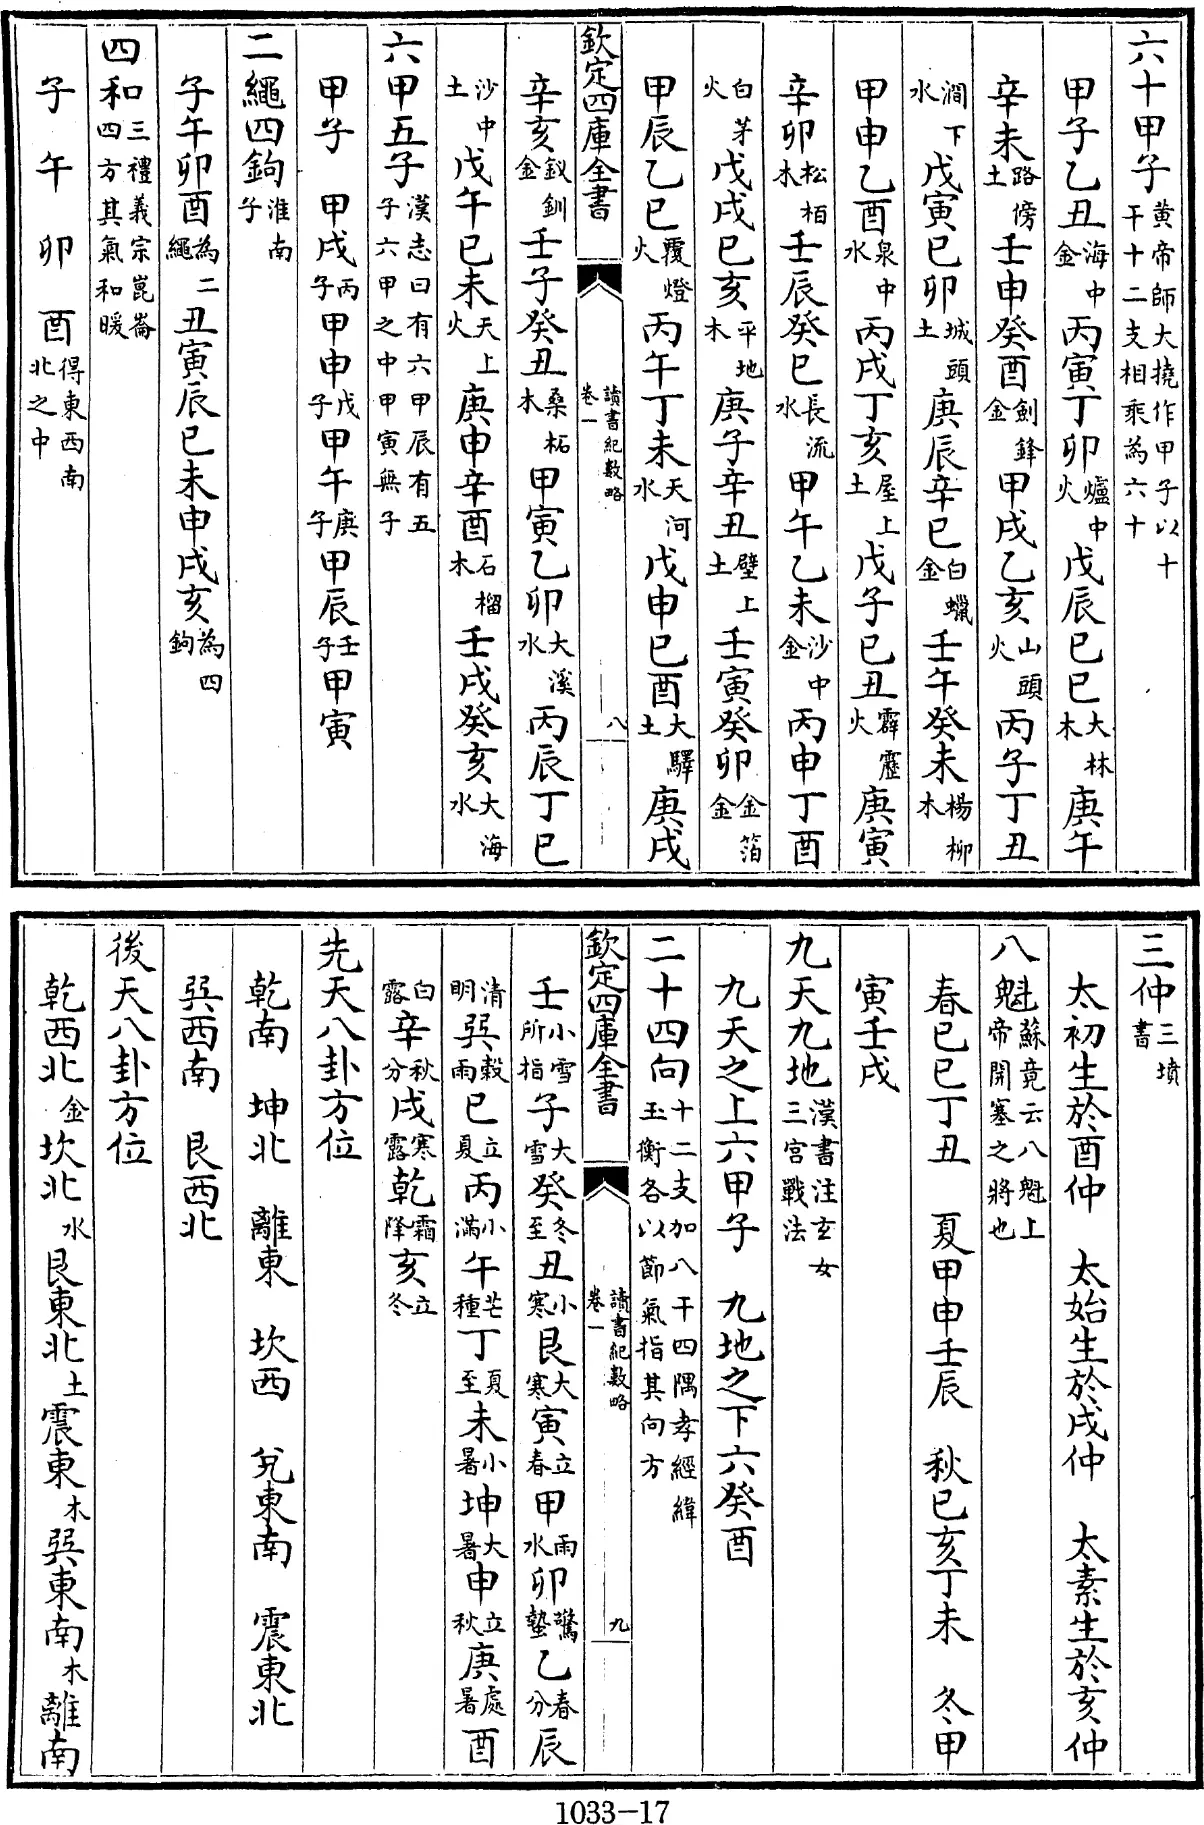 六十甲子黄帝師大撓作甲子以十干十二支相乘為六十
甲子乙丑海中金丙寅丁卯爐中火戊辰己巳大林木庚午
辛未路傍土壬申癸酉劍鋒金甲戌乙亥山頭火丙子丁丑
澗下水戊寅己卯城頭土庚辰辛巳白蠟金壬午癸未楊柳木
甲申乙酉泉中水丙戌丁亥屋上土戊子己丑霹靂火庚寅
辛卯松栢木壬辰癸巳長流水甲午乙未沙中金丙申丁酉
白茅火戊戌己亥平地木庚子辛丑壁上土壬寅癸卯金箔金
甲辰乙巳覆燈火丙午丁未天河水戊申己酉大驛土庚戌
欽定四庫全書 讀書紀數略卷一 八
辛亥釵釧金壬子癸丑桑柘木甲寅乙卯大溪水丙辰丁巳
沙中土戊午己未天上火庚申辛酉石榴木壬戌癸亥大海水
六甲五子漢志曰有六甲辰有五子六甲之中甲寅無子
甲子 甲戌丙子甲申戊子甲午庚子甲辰壬子甲寅
二繩四鉤淮南子
子午卯酉為二繩丑寅辰巳未申戌亥為四鉤
四和三禮義宗崑崙四方其氣和暖
子午卯酉得東西南北之中
三仲三墳書
太初生於酉仲 太始生於戌仲 太素生於亥仲
八魁蘇竟云八魁上帝開塞之將也
春己巳丁丑 夏甲申壬辰 秋己亥丁未 冬甲
寅壬戌
九天九地漢書注玄女三宮戰法
九天之上六甲子 九地之下六癸酉
二十四向十二支加八干四隅孝經緯玉衡各以節氣指其向方
欽定四庫全書 讀書紀數略卷一 九
壬小雪所指子大雪癸冬至丑小寒艮大寒寅立春甲雨水卯驚蟄乙春分辰
清明巽穀雨巳立夏丙小滿午芒種丁夏至未小暑坤大暑申立秋庚處暑酉
白露辛秋分戌寒露乾霜降亥立冬
先天八卦方位
乾南 坤北 離東 坎西 兌東南 震東北
巽西南 艮西北
後天八卦方位
乾西北金坎北水艮東北土震東木巽東南木離南
1033-17